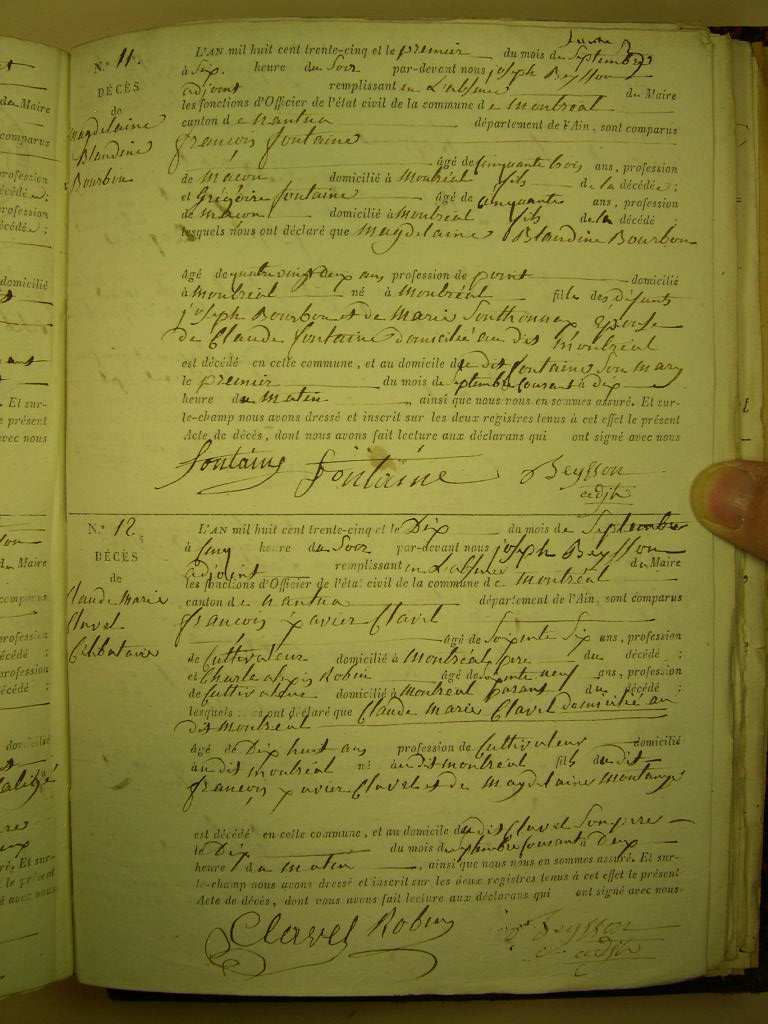 N.° 11.
DÉCÈS
de
Magdelaine
Blandine
Bourbon
L'AN mil huit cent trente-cinq et le premier du mois de Septembre
à Six heure du Soir par-devant nous joseph Beysson
adjoint remplissant en L'absence du Maire
les fonctions d'Officier de l'état civil de la commune de Montréal
canton de nantua département de l'Ain, sont comparus
françois fontaine
âgé de cinquante trois ans, profession
de macon domicilié à Montréal fils de la décédée;
et Grégoire fontaine âgé de cinquante ans, profession
de macon domicilié à Montreal fils de la décédé;
lesquels nous ont déclaré que Magdelaine Blandine Bourbon
âgé de quatre vingt deux ans profession de point domicilié
à Montréal né à Montréal fille des défunts
joseph Bourbon et de Marie Epouse
de Claude fontaine domicilié au dit Montréal
est décédé en cette commune, et au domicile du dit fontaine son mary
le premier du mois de Septembre courant à Dix
heure du Matin, ainsi que nous nous en sommes assuré. Et sur-
le-champ nous avons dressé et inscrit sur les deux registres tenus à cet effet le présent
Acte de décès, dont nous avons fait lecture aux déclarans qui ont signé avec nous
fontaine fontaine Beysson
adjt
N.° 12.
DÉCÈS
de
Claude Marie
Clavel
Célibataire
L'AN mil huit cent trente-cinq et le Dix du mois de Septembre
à Cinq heure du Soir par-devant nous joseph Beysson
adjoint remplissant en L'absence du Maire
les fonctions d'Officier de l'état civil de la commune de Montréal
canton de nantua département de l'Ain, sont comparus
françois xavier Clavel
âgé de Soixente Six ans, profession
de Cultivateur domicilié à Montréal père du décédé;
et Charle alexis Robin âgé de soixente neuf ans, profession
de Cultivateur domicilié à Montréal parant du décédé;
lesquels nous ont déclaré que Claude Marie Clavel domicilié au
dit Montréal
âgé de Dix huit ans profession de Cultivateur domicilié
au dit Montréal né au dit Montréal fils du dit
françois xavier Clavel et de Magdelaine
est décédé en cette commune, et au domicile du dit Clavel Son père
le Dix du mois de Septembre Courant à Deux
heure du maten, ainsi que nous nous en sommes assuré. Et sur-
le-champ nous avons dressé et inscrit sur les deux registres tenus à cet effet le présent
Acte de décès, dont vous avons fait lecture aux déclarans qui ont signé avec nous
Clavel Robin Beysson
adjt